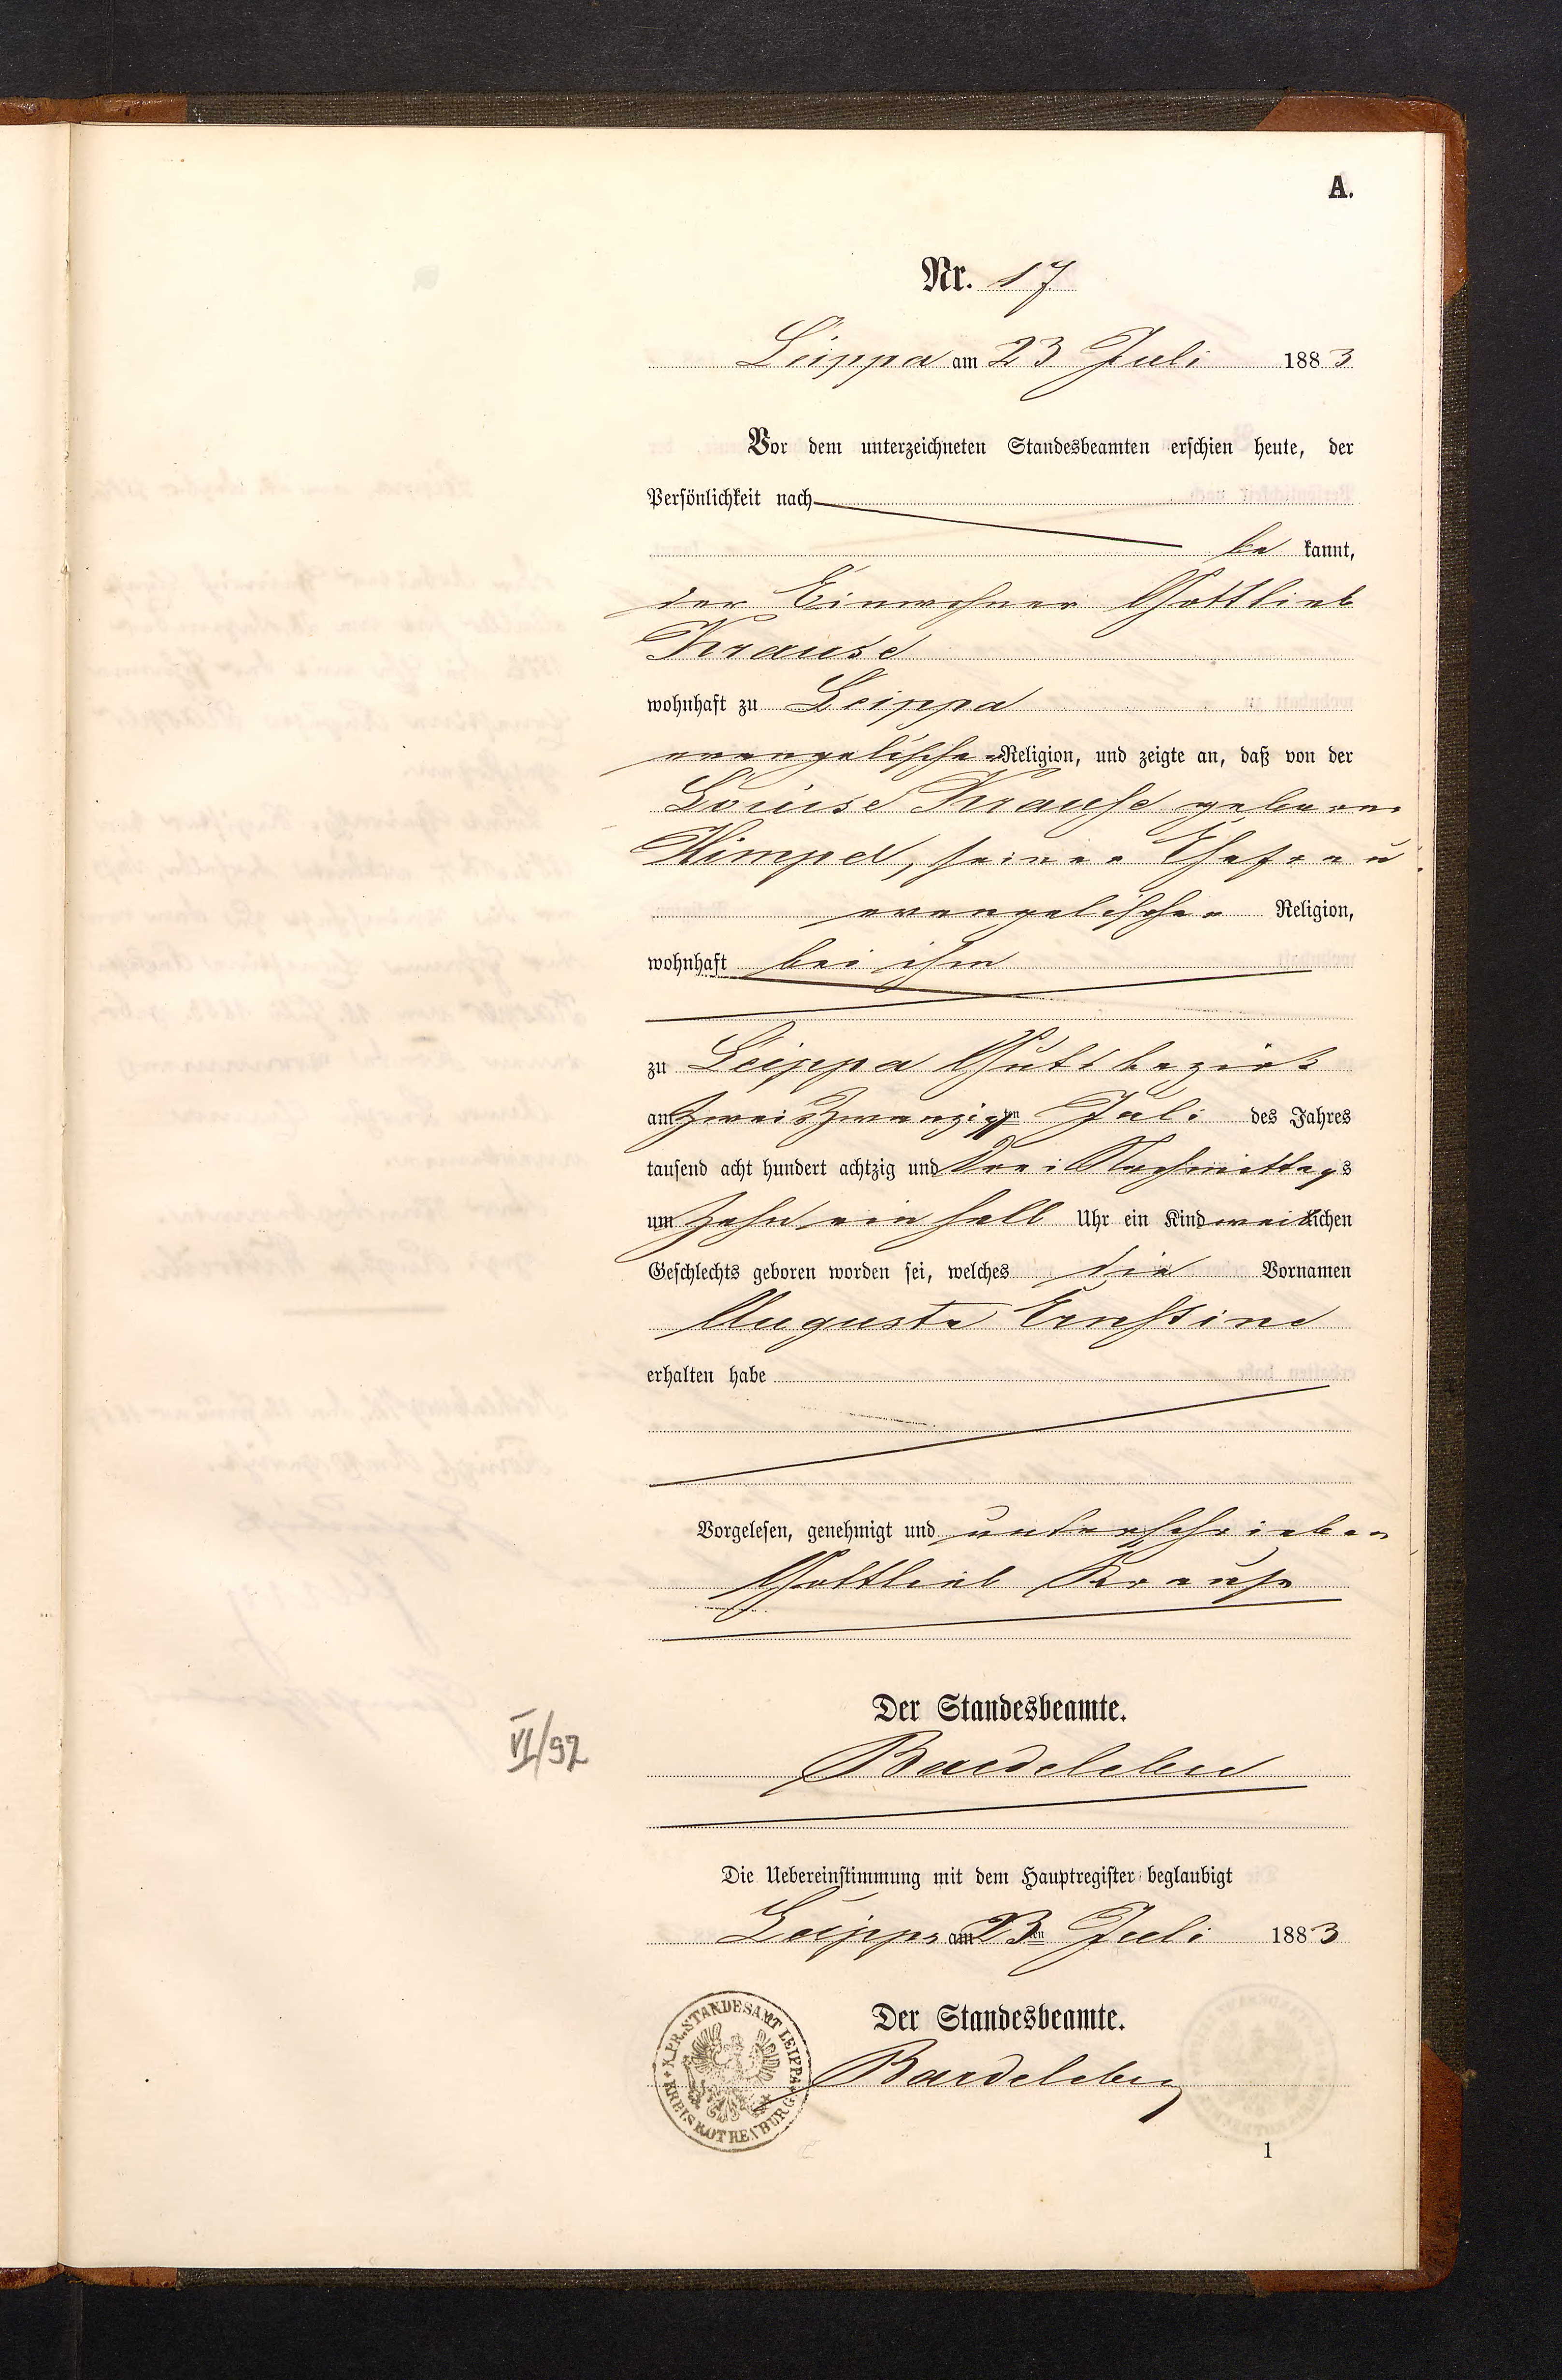 A.
Nr. 17
Leippa am 23 Juli 1883
Vor dem unterzeichneten Standesbeamten erschien heute, der
Persönlichkeit nach
be kannt,
der Einwohner Gottlieb
Krause
wohnhaft zu Leippa
evangelischer Religion, und zeigte an, daß von der
Louise Krause geborne
Wimpel, seiner Ehefrau
evangelischer Religion,
wohnhaft bei ihm
zu Leippa Gutsbezirk
am zweiszwanzigsten Juli des Jahres
tausend acht hundert achtzig und drei Nachmittags
um zehn ein halb Uhr ein Kind weiblichen
Geschlechts geboren worden sei, welches die Vornamen
Auguste Ernstine
erhalten habe
Vorgelesen, genehmigt und unterschrieben
Gottlieb Krause
Der Standesbeamte.
VI/92
Bardeleben
Die Uebereinstimmung mit dem Hauptregister beglaubigt
Leippa am 23ten Juli 1883
Der Standesbeamte.
K. PR. STANDESAMT LEIPPA
KREIS ROTHENBURG
Bardeleben
1